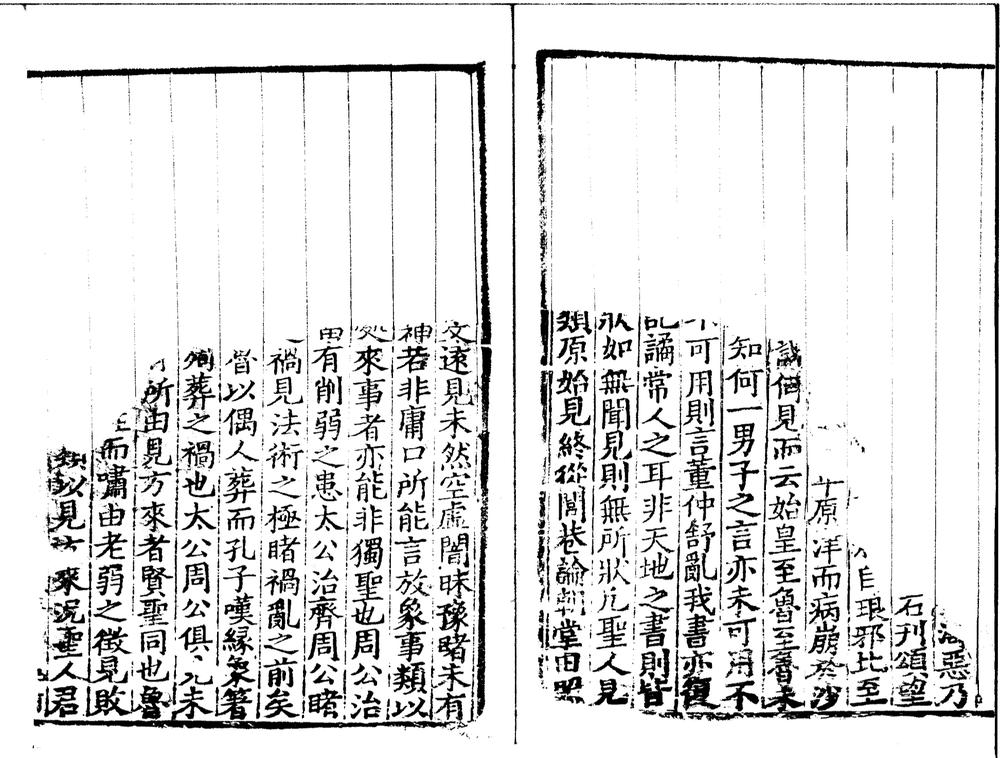 惡乃
石刊頌望
自琅邪比至
原洋而病崩於沙
見而云始皇至魯至魯未
知何一男子之言亦未可用不
可用則言董仲舒亂我書亦復
記譎常人之耳非天地之書則皆
狀如無聞見則無所狀凡聖人見
類原始見終從閭巷論朝堂由昭
文遠見未然空虛闇昧豫睹未有
神若非庸口所能言放象事類以
處來事者亦能非獨聖也周公治
有削弱之患太公治齊周公睹
禍見法術之極睹禍亂之前矣
以偶人葬而孔子嘆緣象箸
殉葬之禍也太公周公俱見未
所由見方來者賢聖同也魯
而嘯由老弱之徵見敗
以見方來況聖人君